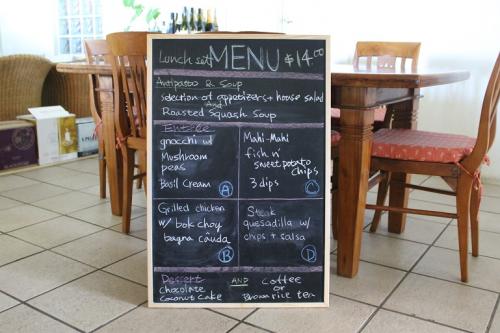 Lunch set MENU $14.00
Antipasto & Soup
selection of appetizers + house salad
and
Roasted Squash Soup
Entrée
gnocchi w/
Mushroom
peas
Basil Cream A
Mahi-Mahi
fish n'
sweet potato
chips
3 dips C
Grilled chicken
w/ bok choy
bagna câuda
B
Steak
quesadilla w/
chips + salsa
D
Dessert
chocolate
Coconut Cake
AND
Coffee
or
Brown rice tea